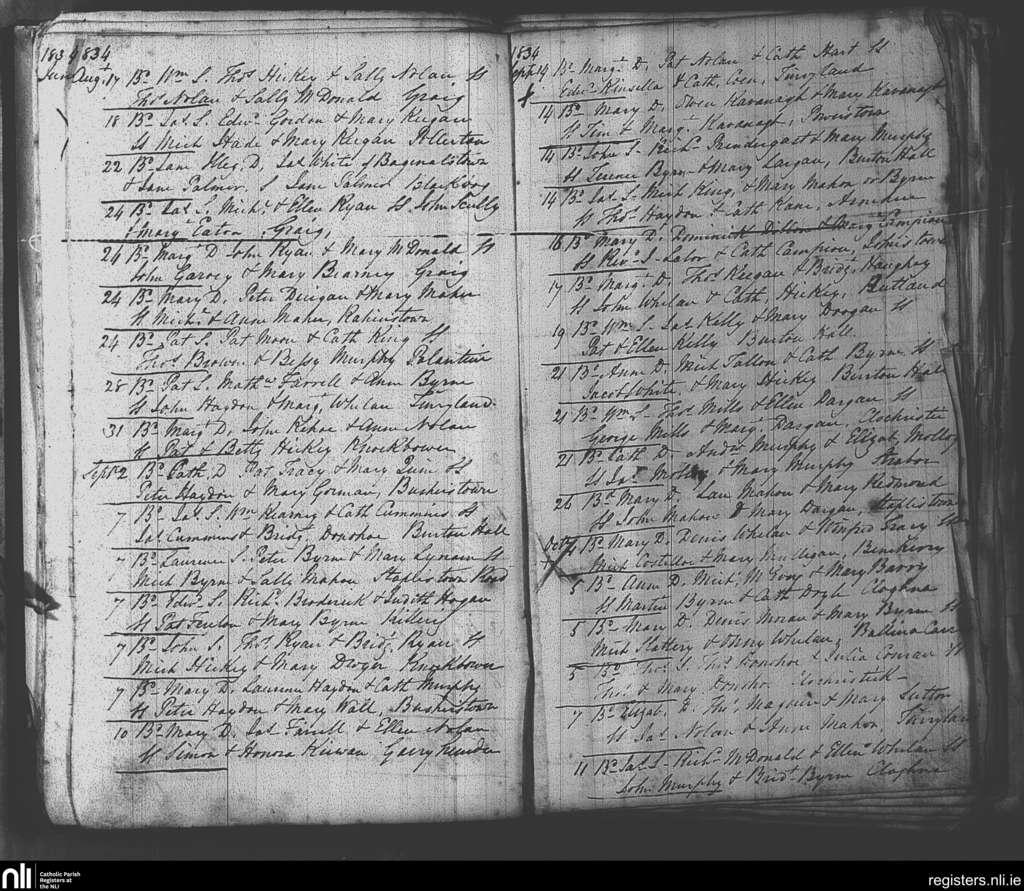 1834 1834
Jun Augt 17 Bd Wm S. Thos Hickey & Sally Nolan Ss
Thos Nolan & Sally McDonald Graig
18 Bd Jas S. Edwd Gordon & Mary Keegan
Ss Mich Hade & Mary Keegan Pollerton
22 Bd Jane Illeg. D, Jas White of Bagenalstown
& Jane Palmer, S Jane Palmer Blackbog
24 Bd Jas S. Michl & Ellen Ryan Ss John Scully
& Mary Eaton Graig,
24 Bd Margt D John Ryan & Mary McDonald Ss
John Garvey & Mary Bearney Graig
24 Bd Mary D, Peter Duigan & Mary Maher
Ss Michl & Anne Maher, Rahinstown
24 Bd Pat S. Pat Moore & Cath King Ss
Thos Brown & Bessy Murphy Palantine
28 Bd Pat S. Mathw Farrell & Anne Byrne
Ss John Haydon & Margt Whelan Tinryland.
31 Bd Margt D, John Kehoe & Anne Nolan
Ss Pat & Betty Hickey Knockbower
Sept 2 Bd Cath D Pat Tracy & Mary Ss
Peter Haydon & Mary Gorman, Busherstown
7 Bd Jas S. Wm Kearney & Cath Cummins Ss
Jas Cummins & Bridgt Donohoe Burton Hall
Bd Laurence S. Peter Byrne & Mary Lynam Ss
Mich Byrne & Sally Mahon Staplestown Road
7 Bd Edwd S. Richd Broderick & Judith Hogan
Ss Pat Fenlon & Mary Byrne
7 Bd John S. Thos Ryan & Bridgt Ryan Ss
Mich Hickey & Mary Knockbower
7 Bd Mary D. Laurence Haydon & Cath Murphy
Ss Peter Haydon & Mary Wall, Busherstown
10 Bd Mary D, Jas Farrell & Ellen Nolan
Ss Simon & Honora Kirwan
1834
Sept 14 Bd Margt D, Pat Nolan & Cath Hart Ss
Edwd Kinsella & Cath, Tinryland
14 Bd Mary D, Owen Kavanagh & Mary Kavanagh
Ss Jim & Margt Kavanagh,
14 Bd John S. Richd Prendergast & Mary Murphy
Ss Byrne & Mary Burton Hall
14 Bd Jas S. Mich King, & Mary Mahon or Byrne
Ss Thos Haydon & Cath Kane,
16 Bd Mary D. Dominick & Mary Campion
Ss Revd J. Lalor & Cath Campion,
17 Bd Margt D, Thos Keegan & Bridgt
Ss John Whelan & Cath, Hickey, Rutland
19 Bd Wm S. Jas Kelly & Mary Doogan Ss
Pat & Ellen Kelly Burton Hall
21 Bd Anne D. Mich Tallon & Cath Byrne Ss
Jacob White & Mary Hickey Burton Hall
21 Bd Wm S. Thos Mills & Ellen Dargan Ss
George Mills & Margt Dargan, Clochristic
21 Bd Cath D Andw Murphy & Elizabt Molloy
Ss Jas & Mary Murphy
26 Bd Mary D, Lau Mahon & Mary Redmond
Ss John Mahon & Mary Dargan, Staplestown
Oct Bd Mary D. Denis Whelan & Winifred Tracy Ss
Mich Costelloe & Mary Mulligan, Benekerry
5 Bd Anne D. Mich McEvoy & Mary Barry
Ss Martin Byrne & Cath Doyle Cloghna
5 Bd Mary D. Denis Moran & Mary Byrne Ss
Mich Slattery & Mary Whelan,
5 Bd Thos S. Thos Donohoe & Julia Conran Ss
Thos & Mary Donohoe Clochristick
7 Bd Elizab. D. Thos Maguire & Mary Sutton
Ss Jas Nolan & Anne Mahon, Tinryland
11 Bd Jas S. Richd McDonald & Ellen Whelan Ss
John Murphy & Bridt Byrne Cloghna
nli Catholic Parish
Registers at
the NLI
registers.nli.ie